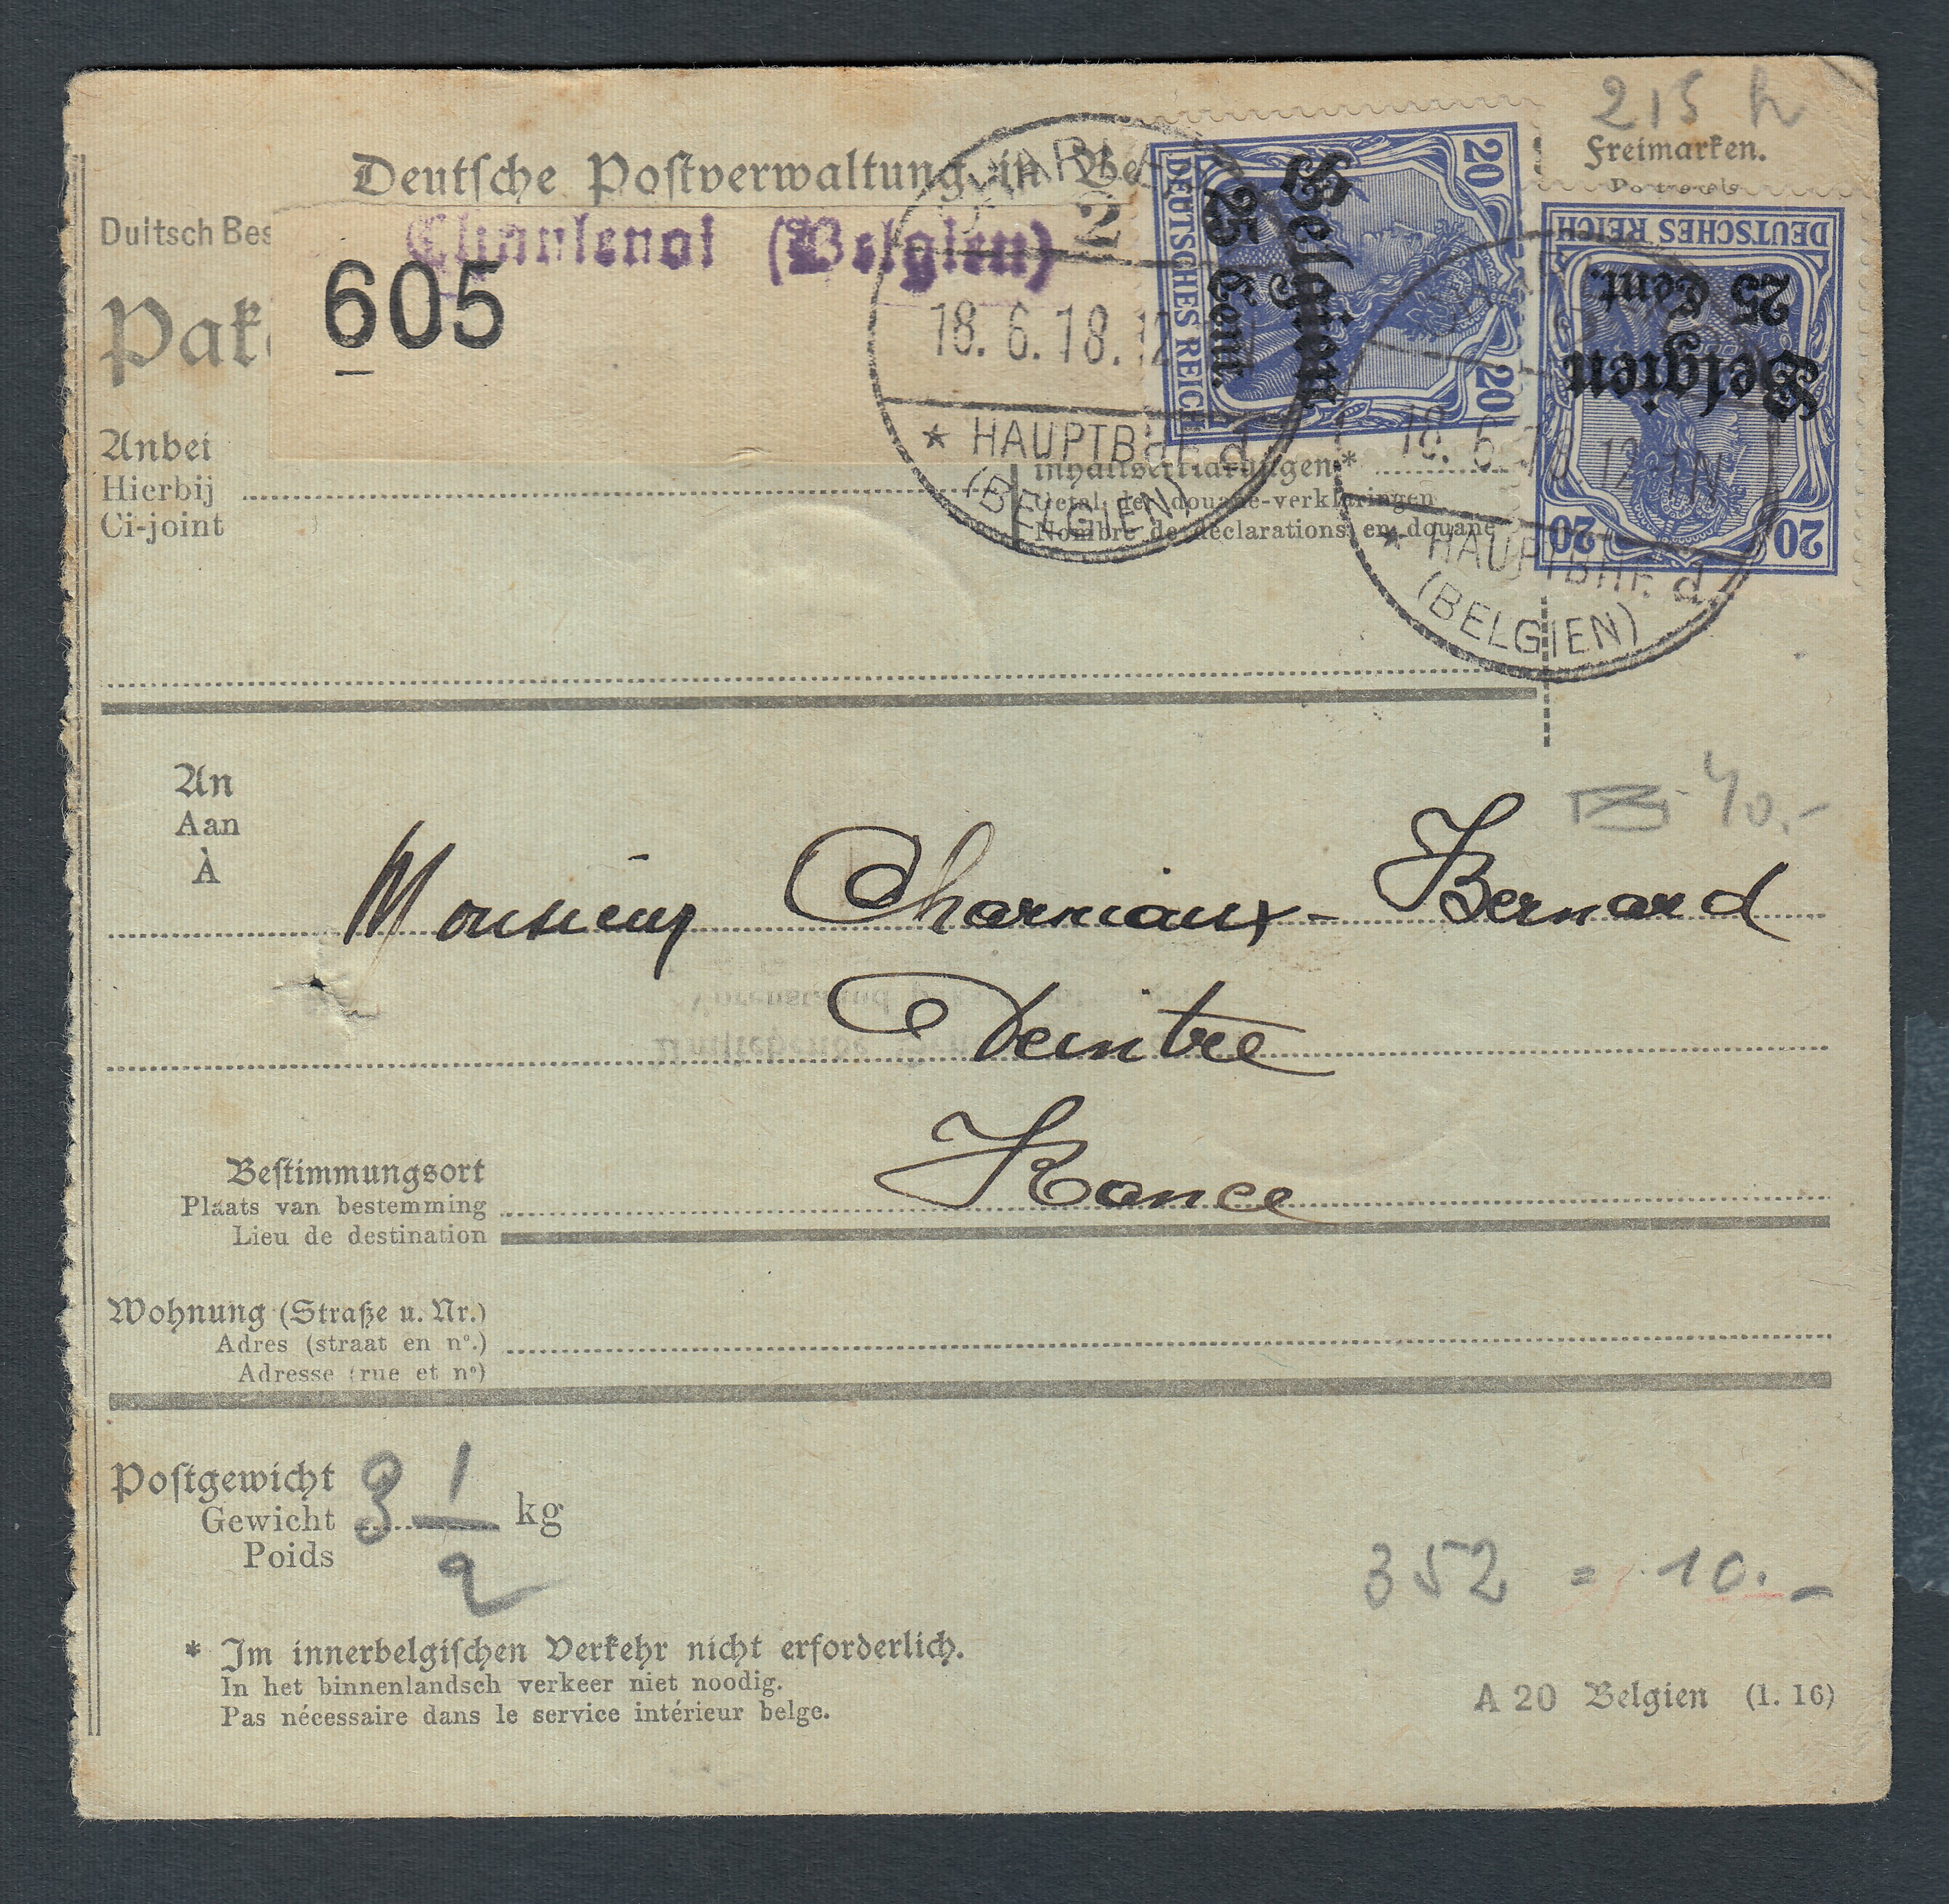 215 h
Freimarken.
Deutsche Postverwaltung in Be
Duitsch Bes
(Belgien)
2
605
Pak
18. 6. 18. 12
* HAUPTBHF. d
(BELGIEN)
DEUTSCHES REICH
20 20
Belgien
25 Cent.
DEUTSCHES REICH
20 20
Belgien
25 Cent.
18. 6. 18. 12-1N
* HAUPTBHF. d
(BELGIEN)
Anbei
Hierbij
Ci-joint
Inhaltserklärungen*
Getal der douane-verklaringen
Nombre de déclarations en douane
An
Aan
À
40.-
Monsieur Charniaux-Bernard
Peintre
Rance
Bestimmungsort
Plaats van bestemming
Lieu de destination
Wohnung (Straße u. Nr.)
Adres (straat en n°.)
Adresse (rue et n°)
Postgewicht
Gewicht
Poids
3 1/2 kg
352 = 10.-
* Im innerbelgischen Verkehr nicht erforderlich.
In het binnenlandsch verkeer niet noodig.
Pas nécessaire dans le service intérieur belge.
A 20 Belgien (1. 16)